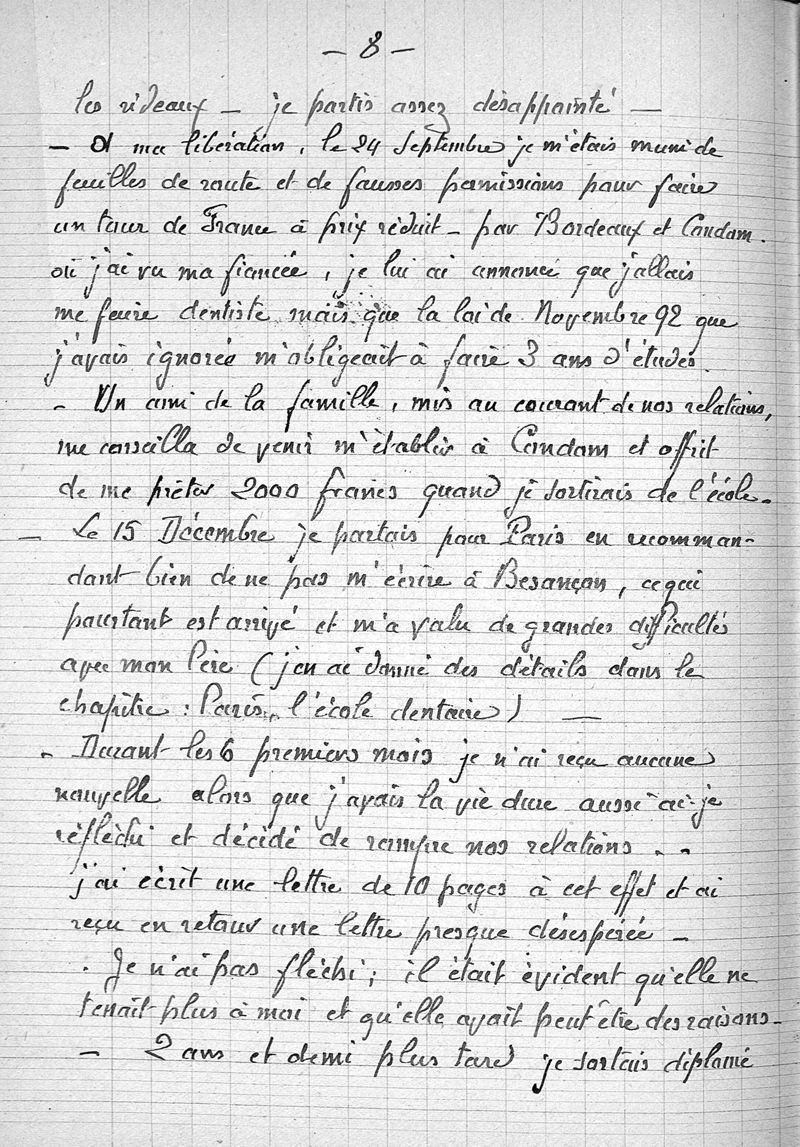 - 8 -
les rideaux - je partis assez désappointé -
- A ma libération, le 24 Septembre je m'étais muni de
feuilles de route et de fausses permissions pour faire
un tour de France à prix réduit - par Bordeaux et Condom.
où j'ai vu ma fiancée, je lui ai annoncé que j'allais
me faire dentiste mais que la loi de Novembre 92 que
j'avais ignorée m'obligeait à faire 3 ans d'études.
- Un ami de la famille, mis au courant de nos relations,
me conseilla de venir m'établir à Condom et offrit
de me prêter 2000 francs quand je sortirais de l'école.
- Le 15 Décembre je partais pour Paris en recomman-
dant bien de ne pas m'écrire à Besançon, ce qui
pourtant est arrivé et m'a valu de grandes difficultés
avec mon Père (j'en ai donné des détails dans le
chapître : Paris, l'école dentaire) -
- Durant les 6 premiers mois je n'ai reçu aucune
nouvelle alors que j'avais la vie dure aussi ai-je
réfléchi et décidé de rompre nos relations . .
j'ai écrit une lettre de 10 pages à cet effet et ai
reçu en retour une lettre presque désespérée -
. Je n'ai pas fléchi ; il était évident qu'elle ne
tenait plus à moi et qu'elle avait peut être des raisons -
- 2 ans et demi plus tard je sortais diplomé